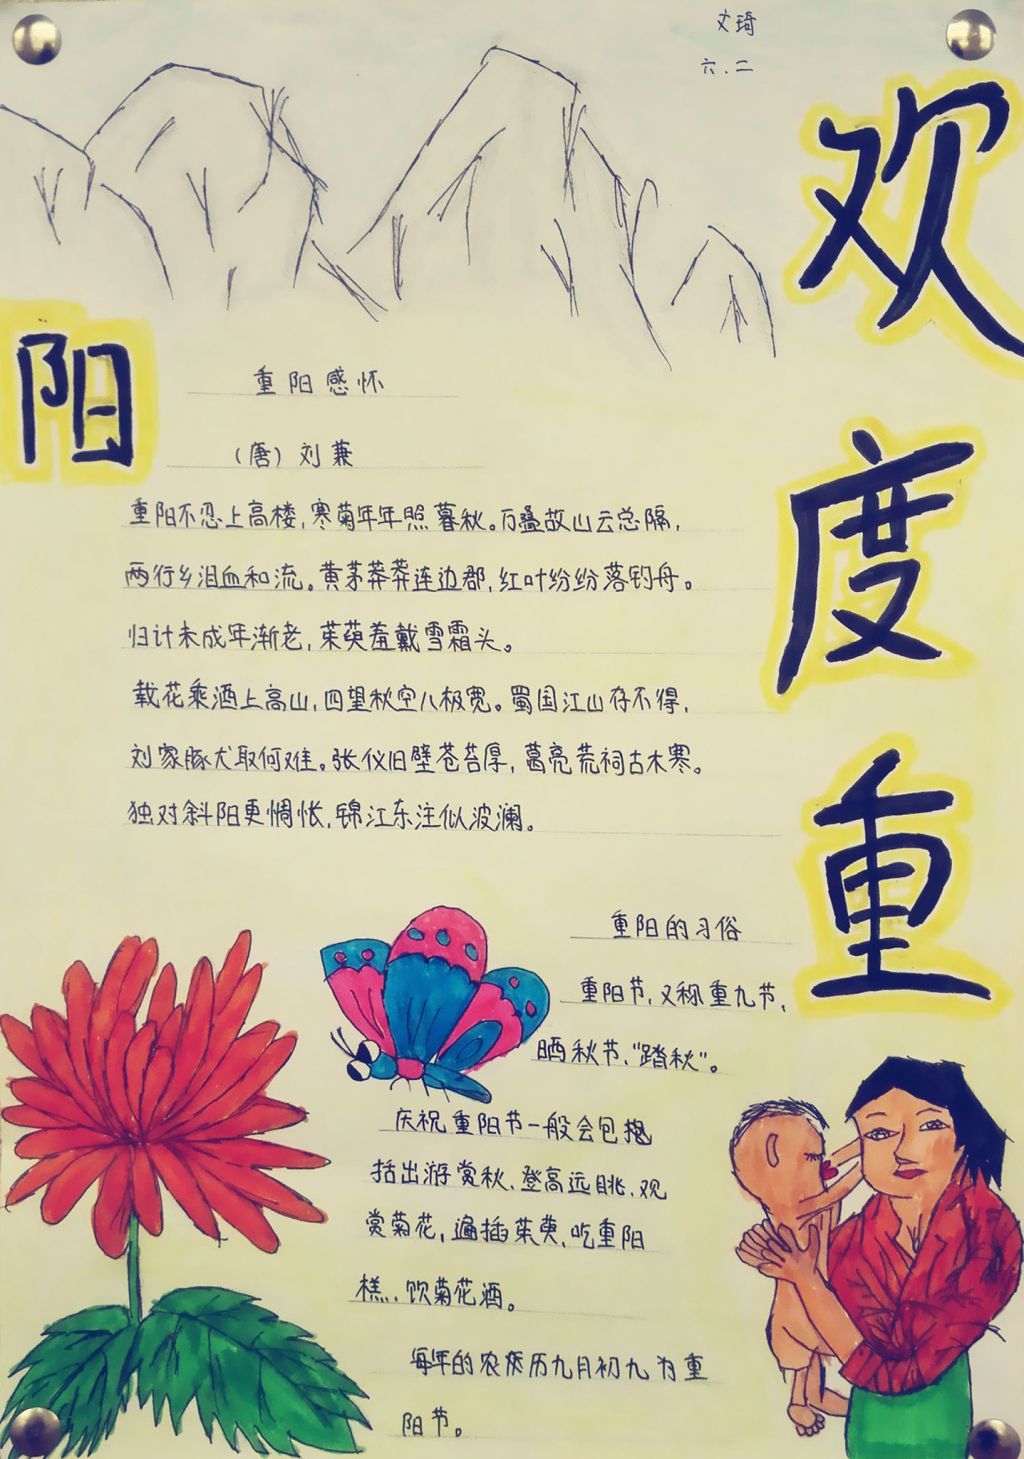 文琦
六.二
欢度重
阳
重阳感怀
（唐）刘兼
重阳不忍上高楼，寒菊年年照暮秋。万叠故山云总隔，
两行乡泪血和流。黄茅莽莽连边郡，红叶纷纷落钓舟。
归计未成年渐老，茱萸羞戴雪霜头。
载花乘酒上高山，四望秋空八极宽。蜀国江山存不得，
刘家豚犬取何难。张仪旧壁苍苔厚，葛亮荒祠古木寒。
独对斜阳更惆怅，锦江东注似波澜。
重阳的习俗
重阳节，又称重九节，
晒秋节、“踏秋”。
庆祝重阳节一般会包抱
括出游赏秋、登高远眺、观
赏菊花，遍插茱萸、吃重阳
糕、、饮菊花酒。
每年的农历九月初九为重
阳节。